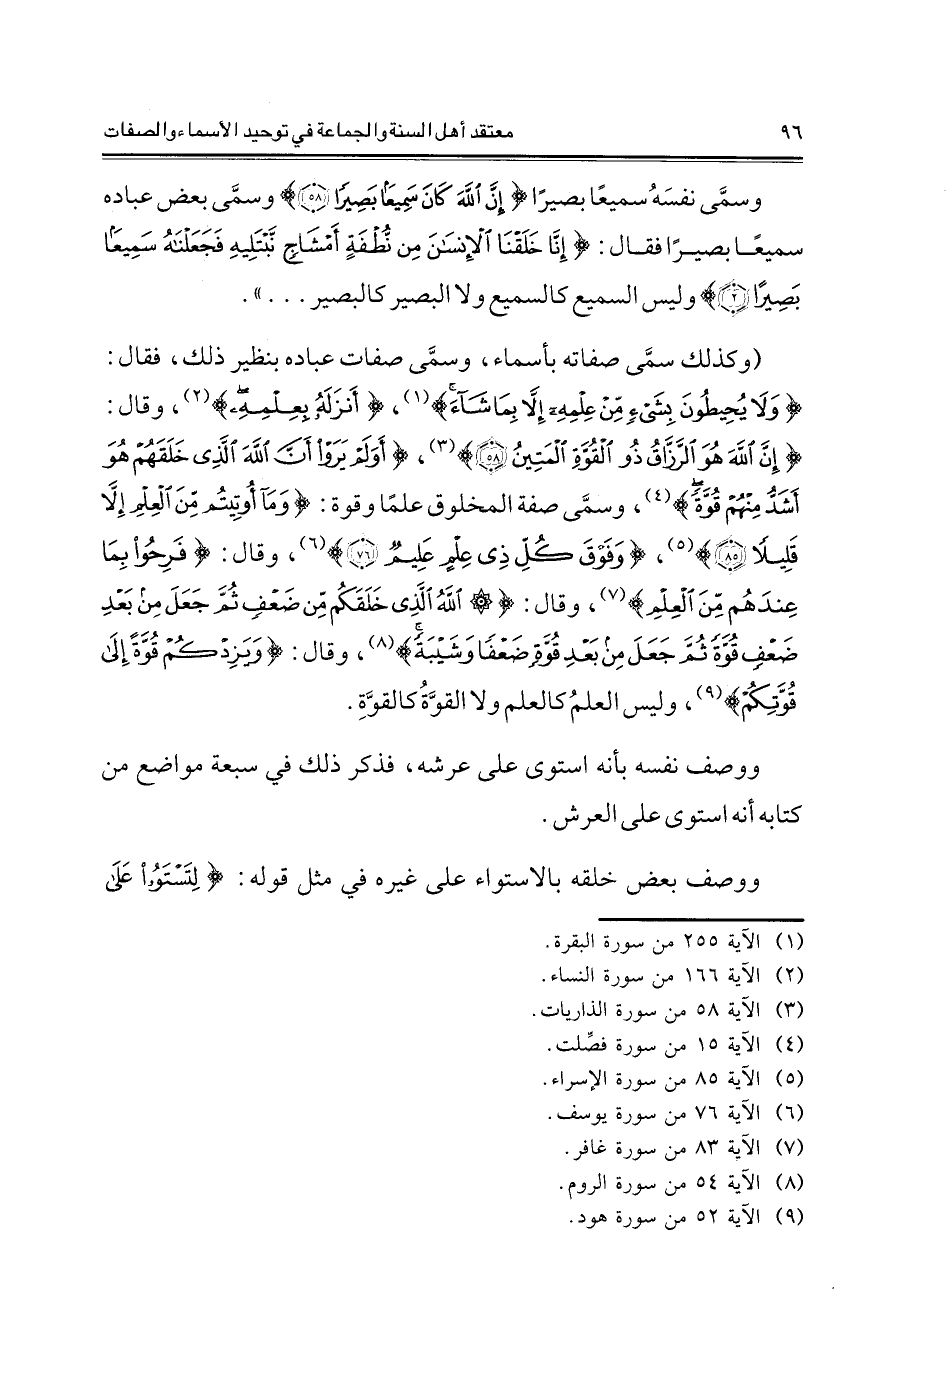 ٩٦ معتقد أهل السنة والجماعة في توحيد الأسماء والصفات
وسمَّى نفسَهُ سميعًا بصيرًا ﴿ إِنَّ ٱللَّهَ كَانَ سَمِيعًۢا بَصِيرًا ٥٨﴾ وسمَّى بعض عباده
سميعًا بصيرًا فقال : ﴿ إِنَّا خَلَقْنَا ٱلْإِنسَٰنَ مِن نُّطْفَةٍ أَمْشَاجٍ نَّبْتَلِيهِ فَجَعَلْنَٰهُ سَمِيعًۢا
بَصِيرًا ٢﴾ وليس السميع كالسميع ولا البصير كالبصير . . . » .
(وكذلك سمَّى صفاته بأسماء ، وسمَّى صفات عباده بنظير ذلك ، فقال :
﴿ وَلَا يُحِيطُونَ بِشَىْءٍ مِّنْ عِلْمِهِۦٓ إِلَّا بِمَا شَآءَ ۚ﴾(١) ، ﴿ أَنزَلَهُۥ بِعِلْمِهِۦ ۖ﴾(٢) ، وقال :
﴿ إِنَّ ٱللَّهَ هُوَ ٱلرَّزَّاقُ ذُو ٱلْقُوَّةِ ٱلْمَتِينُ ٥٨﴾(٣) ، ﴿ أَوَلَمْ يَرَوْا۟ أَنَّ ٱللَّهَ ٱلَّذِى خَلَقَهُمْ هُوَ
أَشَدُّ مِنْهُمْ قُوَّةً ۖ﴾(٤) ، وسمَّى صفة المخلوق علمًا وقوة : ﴿ وَمَآ أُوتِيتُم مِّنَ ٱلْعِلْمِ إِلَّا
قَلِيلًا ٨٥﴾(٥) ، ﴿ وَفَوْقَ كُلِّ ذِى عِلْمٍ عَلِيمٌ ٧٦﴾(٦) ، وقال : ﴿ فَرِحُوا۟ بِمَا
عِندَهُم مِّنَ ٱلْعِلْمِ ﴾(٧) ، وقال : ﴿ ۞ ٱللَّهُ ٱلَّذِى خَلَقَكُم مِّن ضَعْفٍ ثُمَّ جَعَلَ مِنۢ بَعْدِ
ضَعْفٍ قُوَّةً ثُمَّ جَعَلَ مِنۢ بَعْدِ قُوَّةٍ ضَعْفًا وَشَيْبَةً ۚ﴾(٨) ، وقال : ﴿ وَيَزِدْكُمْ قُوَّةً إِلَىٰ
قُوَّتِكُمْ ﴾(٩) ، وليس العلمُ كالعلم ولا القوَّةُ كالقوَّةِ .
ووصف نفسه بأنه استوى على عرشه ، فذكر ذلك في سبعة مواضع من
كتابه أنه استوى على العرش .
ووصف بعض خلقه بالاستواء على غيره في مثل قوله : ﴿ لِتَسْتَوُۥا۟ عَلَىٰ
(١) الآية ٢٥٥ من سورة البقرة .
(٢) الآية ١٦٦ من سورة النساء .
(٣) الآية ٥٨ من سورة الذاريات .
(٤) الآية ١٥ من سورة فصِّلت .
(٥) الآية ٨٥ من سورة الإسراء .
(٦) الآية ٧٦ من سورة يوسف .
(٧) الآية ٨٣ من سورة غافر .
(٨) الآية ٥٤ من سورة الروم .
(٩) الآية ٥٢ من سورة هود .